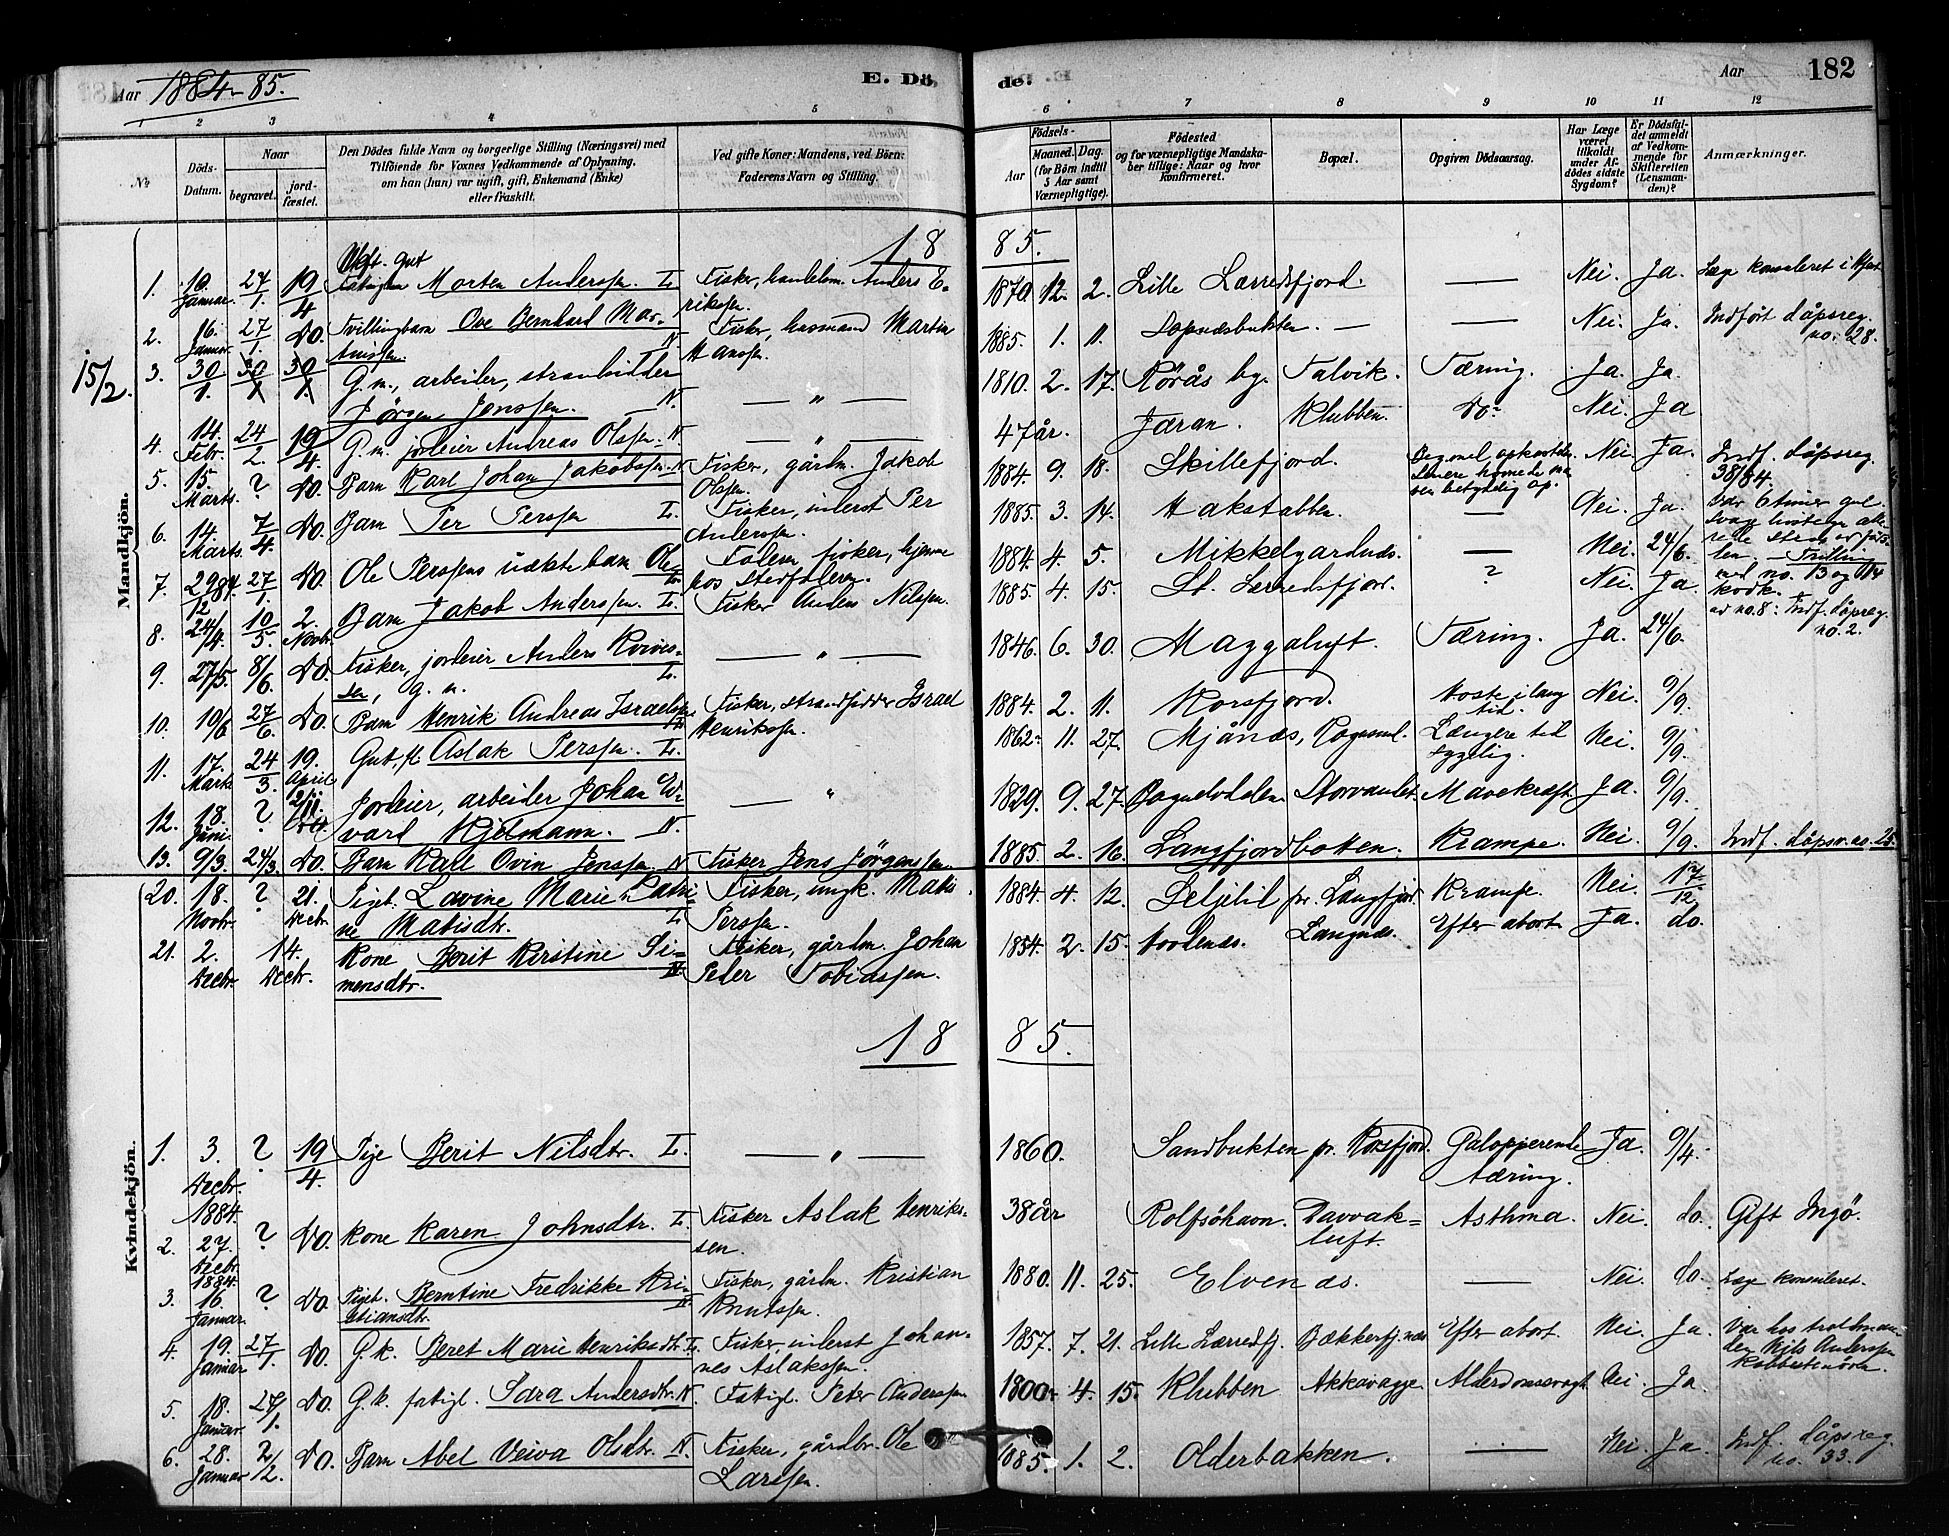 Aar 1884-85.
E. Dö
de.
Aar
182
1 2 3 4 5 6
6 7 8 9 10 11 12
No.
Döds-Datum.
Naar
begravet.
jord-fæstet.
Den Dödes fulde Navn og borgerlige Stilling (Næringsvei) med
Tilföiende for Voxnes Vedkommende af Oplysning,
om han (hun) var ugift, gift, Enkemand (Enke)
eller fraskilt.
Ved gifte Koner: Mandens, ved Börn:
Faderens Navn og Stilling.
Födsels-
Aar
Maaned.
Dag.
(for Börn indtil 5 Aar samt Værnepligtige).
Födested
og for værnepligtige Mandska-
ber tillige: Naar og hvor
konfirmeret.
Bopæl.
Opgiven Dödsaarsag.
Har Læge
været
tilkaldt
under Af-
dödes sidste
Sygdom?
Er Dödsfal-
det anmeldt
af Vedkom-
mende for
Skifteretten
(Lensman-
den)?
Anmærkninger.
18 85.
Mandkjön.
15/2.
1. 10. Januar. 27/1. 19/4 gut Morten Anderssen. L. Fisker, Anders Erikssen. 1870 12. 2. Lille Lærredsfjord. — Nei. Ja. Læge
2. 16. Januar. 27/1. Do. Tvillingbarn Ove Bernhard Martinssen. N. Fisker, husmand Martin Hanssen. 1885. 1. 11. Sopnesbukten. — — Nei. Ja. Indført dåpsreg. no. 28.
3. 30/1. 30/1 30/1. G. m., arbeider, strandsidder Jörgen Jonssen. N. — " — 1810. 2. 17. Rörås bg. Talvik. Tæring. Ja. Ja.
4. 14. Febr. 24/2. 19/4. G. m. jordeier Andreas Olssen. N — " — 47 år. Jæran. Klubben. Do. Nei. Ja
5. 15. Marts. ? Do. Barn Karl Johan Jakobssen. N Fisker, gårdm. Jakob Olssen. 1884. 9. 18. Skillefjord. Nei. Ja. Indf. dåpsreg. 38/84.
6. 14. Marts. 7/4. Do. Barn Per Perssen L. Fisker, inderst Per Anderssen. 1885. 3. 14. Hakstabben. — Nei. Ja. Var 6 timer gul.
7. 29/12 84. 27/1. Do. Ole Perssens uækte barn Ole L. Faderen fisker, hjemme hos Stedfaderen. 1884. 4. 5. Mikkelgardnæs. — Nei. 24/6. Trilling med no. 13 og 14
8. 24/4. 10/5 2. Novbr. Barn Jakob Anderssen. L. Fisker Anders Nilssen. 1885. 4. 15. Lt. Lerredsfjord. ? Nei. Ja ad no. 8: Indf. dåpsreg. no. 2.
9. 27/5. 8/6. Do. Fisker, jordeier Anders L. g. m. — " — 1846. 6. 30. Maggaluft. Tæring. Ja. 24/6.
10. 10/6 27/6. Do. Barn Henrik Andreas Israelssen L. Fisker, strandsidder Israel Henrikssen. 1884. 2. 11. Korsfjord. Hoste i lang tid. Nei. 9/9.
11. 17. Marts 24/3. 19. April Gut, fl. Aslak Perssen. L. 1862. 11. 27. Mjånes, Længere tid sygelig. Nei. 9/9.
12. 18. Juni. ? Jordeier, arbeider Johan Edvard Hjelmann. N. — " 1829. 9. 27. Bognelvdalen Storvandet. Mavekræft. Ja. 9/9.
13. 9/3. 24/3. Do. Barn Karl Ovin Jenssen N Fisker Jens Jörgenssen. 1885. 2. 16. Langfjordbotten. Krampe. Nei. 9/9. Indf. dåpsr. no. 25.
20. 18. Novbr. ? 21. Decbr. Pigeb. Lavine Marie Matisdtr. L. Fisker, ungk. Matis Perssen. 1884. 4. 12. Leljelil pr. Langfjor. Krampe. Nei. 17/12
21. 2. Decbr. 14. Decbr. Kone Berit Kirstine Simensdtr. N. Fisker, gårdm. Johan Peter Tobiassen. 1854. 2. 15. Langnæs. Efter abort. Ja. do.
18 85.
Kvindekjön.
1. 3. Decbr. 1884. ? 19/4. Pige Berit Nilsdtr. L. — " — 1860. Sandbukten pr. Korsfjord. Galopperende tæring. Ja. 9/4.
2. 27. Decbr 1884. ? Do. Kone Karen Johnsdtr. L. Fisker Aslak Henrikssen. 38 år Rolfsöhavn. Davvakluft. Asthma. Nei. do. Gift Ingö.
3. 16. Januar. ? Do. Pigeb. Berntine Fredrikke Kristiansdtr. N. Fisker, gårdm. Kristian Knutssen. 1880. 11. 25. Elvenæs. — Nei. do. Læge konsuleret.
4. 19. Januar 27/1. Do. G. k. Beret Marie Henriksdtr. L. Fisker, inderst Johannes Aslakssen. 1857. 7. 21. Lille Lærredsfj. Bækkerfj.næs Efter abort. Nei. Ja. Var hos troldmanden Nils Anderssen
5. 18. Januar 27/1. Do. G. k. fattigl. Sara Andersdtr. N. Fattigl. Peter Anderssen 1800. 4. 15. Klubben Akkavagge. Alderdomssvagh. Nei. Ja.
6. 28. Januar 2/12. Do. Barn Abel Veiva Olsdtr. N. Fisker, gårdbr. Ole Larssen. 1885. 1. 2. Olderbakken. — Nei. Ja. Indf. dåpsreg. no. 33.